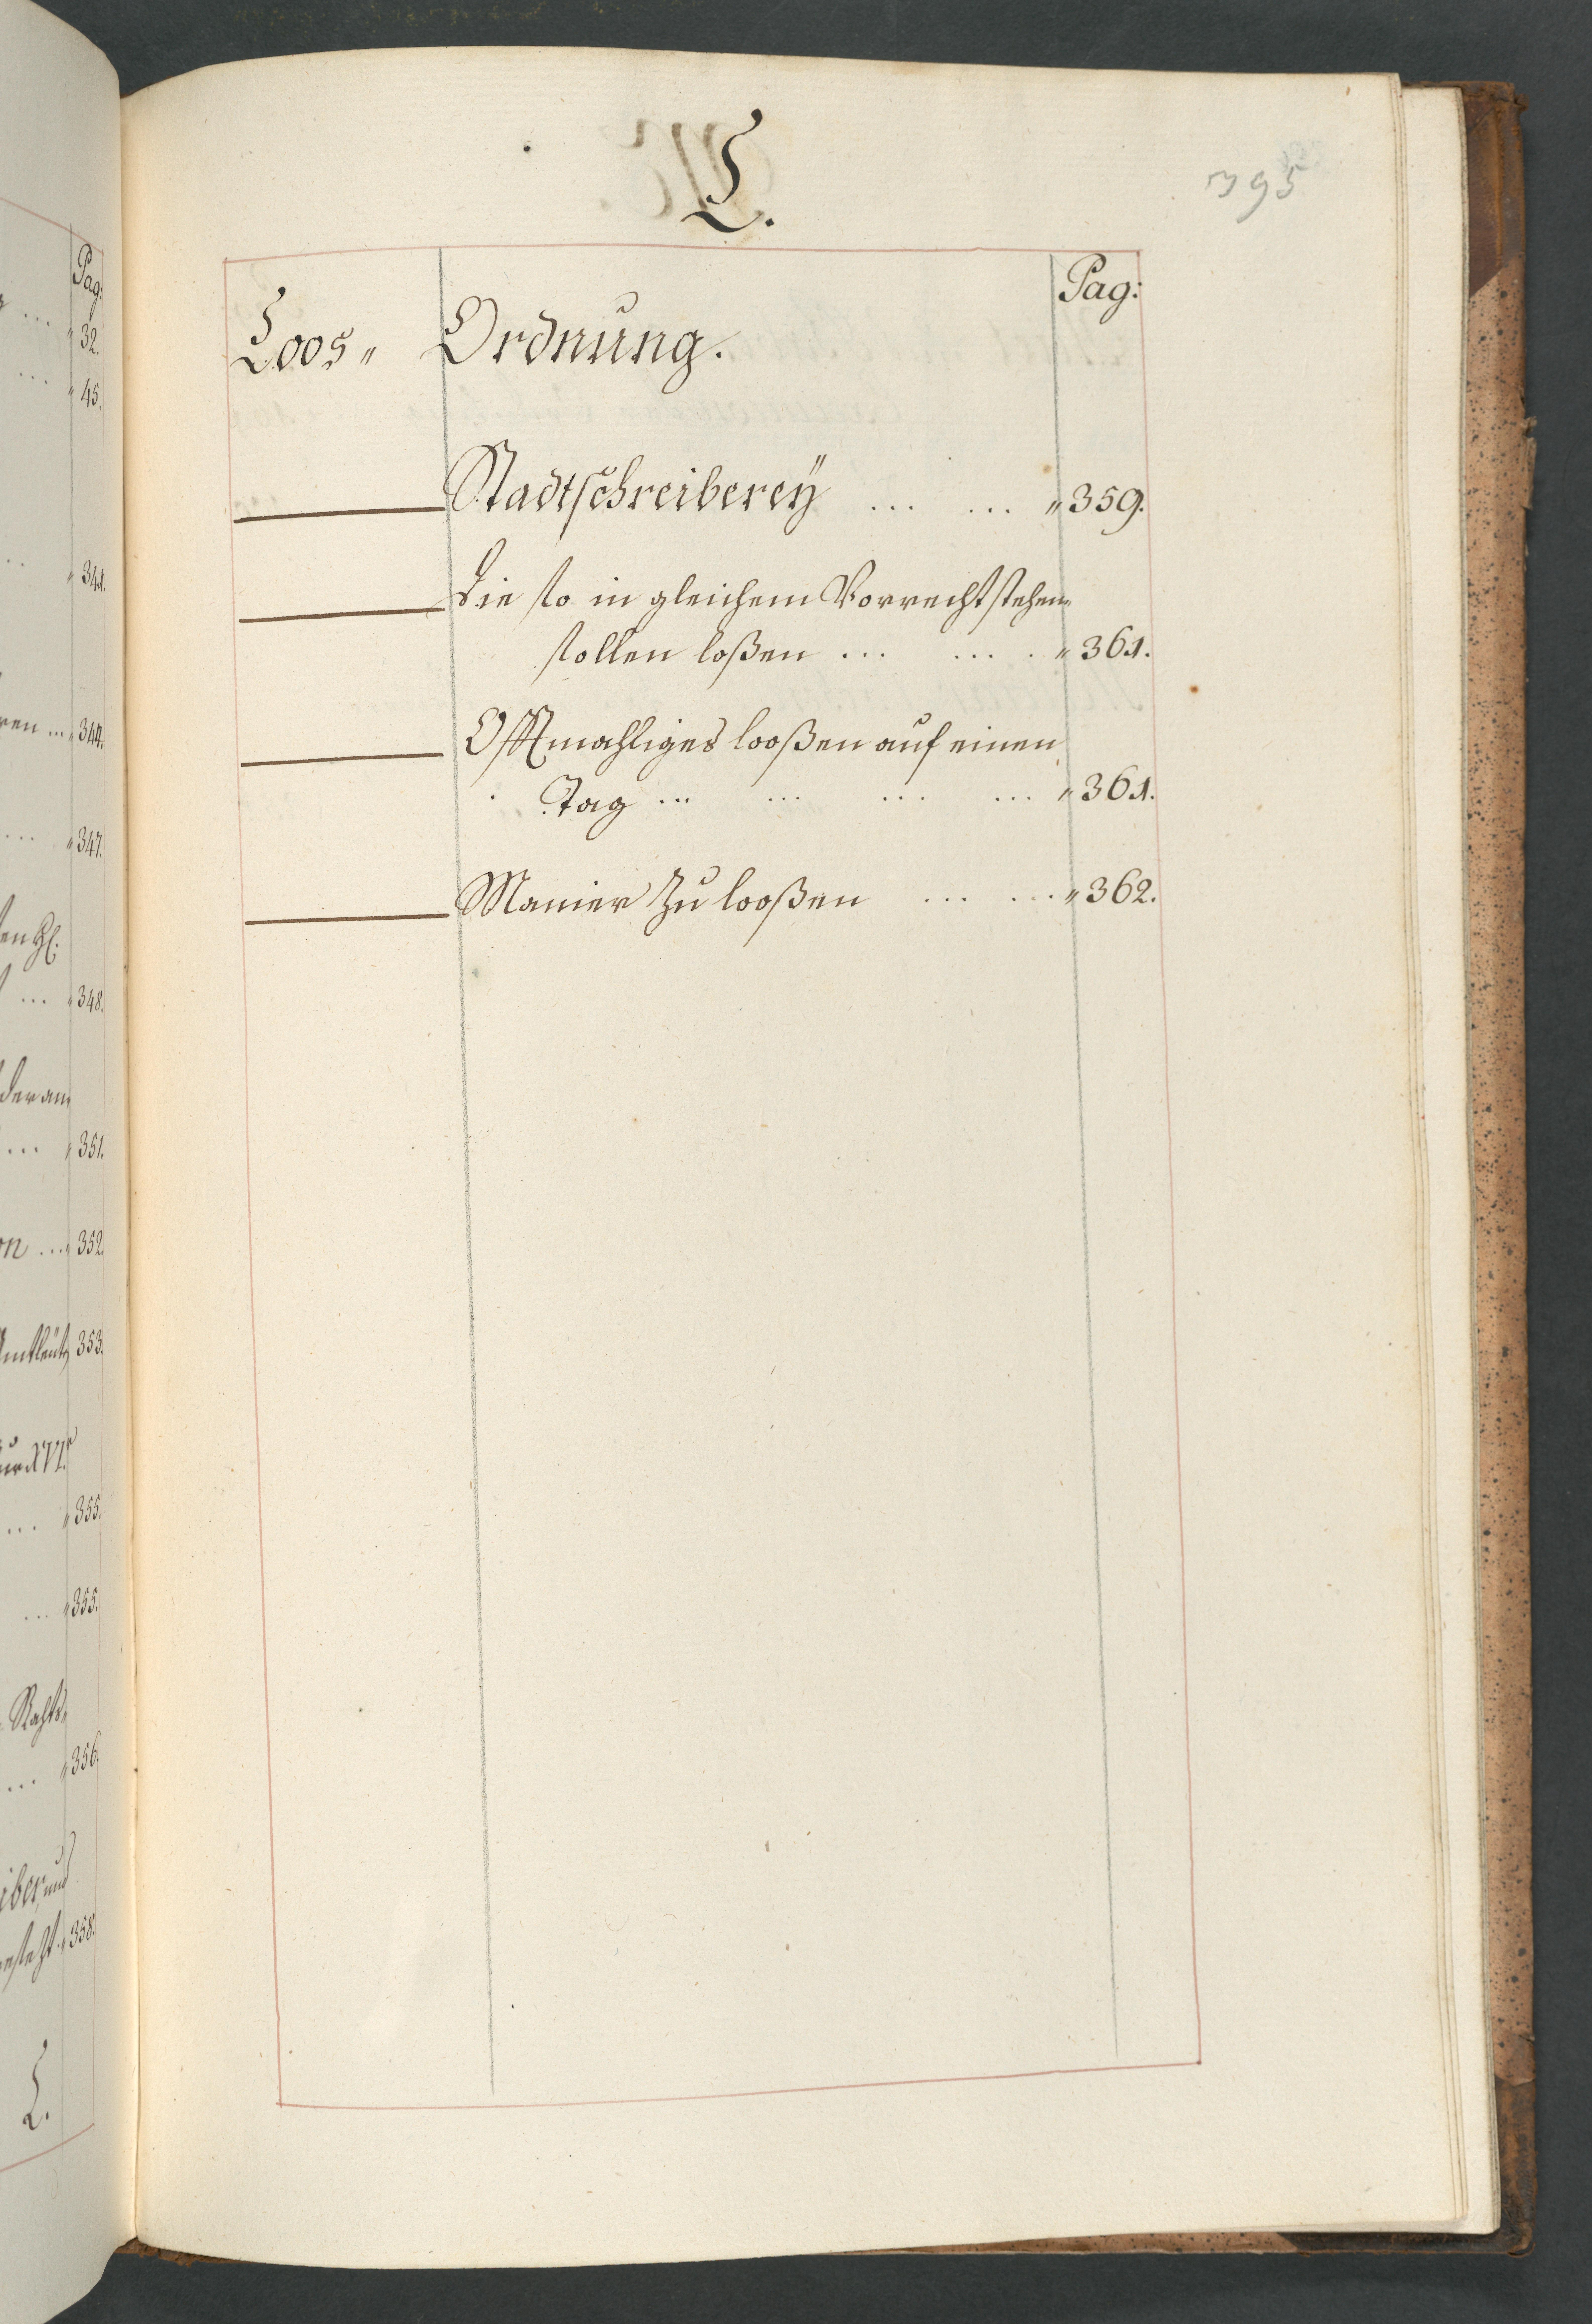 L.
395
Pag:
Loos„ Ordnung.
Stadtschreiberey ... ... „ 359.
Die so in gleichem Vorrecht stehen„
sollen loßen ... ... . „ 361.
Offtmahliges looßen auf einen
Tag ... ... ... ... „ 361.
Manier zu looßen ... ... „ 362.
Pag:
... „ 32.
... „ 45.
... „ 341.
... „ 344.
... „ 347.
... „ 348.
der an„
... „ 351.
... „ 352.
353.
... „ 355.
... „ 355.
Rahts„
... „ 356.
„ 358.
L.